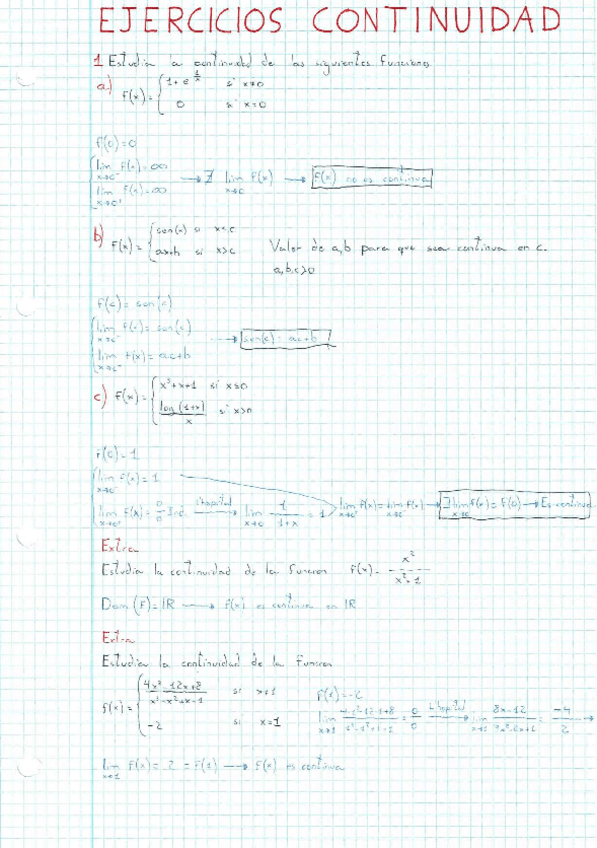 EJERCICIOS CONTINUIDAD
1 Estudia la continuidad de las siguientes funciones
a) f(x)= { 1+e^(1/x) si x≠0
0 si x=0
f(0)=0
lim x→0⁻ f(x)=∞
lim x→0⁺ f(x)=∞ → ∄ lim x→0 f(x) → f(x) no es continua
b) f(x)= { sen(x) si x≤c
ax+b si x>c
Valor de a,b para que sea continua en c.
a,b,c>0
f(c)= sen(c)
lim f(x)= sen(c)
lim f(x)= ac+b → sen(c)= ac+b
c) f(x)= { x³+x+1 si x≤0
log(1+x)/x si x>0
f(0)=1
lim f(x)=1
lim f(x)= 0/0 Ind. L'hopital → lim x→0 1/(1+x) = 1 lim f(x)= lim f(x) → ∃ lim f(x)= f(0) → Es continua
Extra
Estudia la continuidad de la funcion f(x)= x²/(x²+1)
Dom(f)= IR → f(x) es continua en IR
Extra
Estudia la continuidad de la funcion
f(x)= { (4x²-12x+8)/(x³-x²+x-1) si x≠1
-2 si x=1
f(x)=-2
lim x→1 = 0/0 L'hopital → lim x→1 (8x-12)/(3x²-2x+1) = -4/2 →
lim x→1 f(x)= 2 = f(1) → f(x) es continua